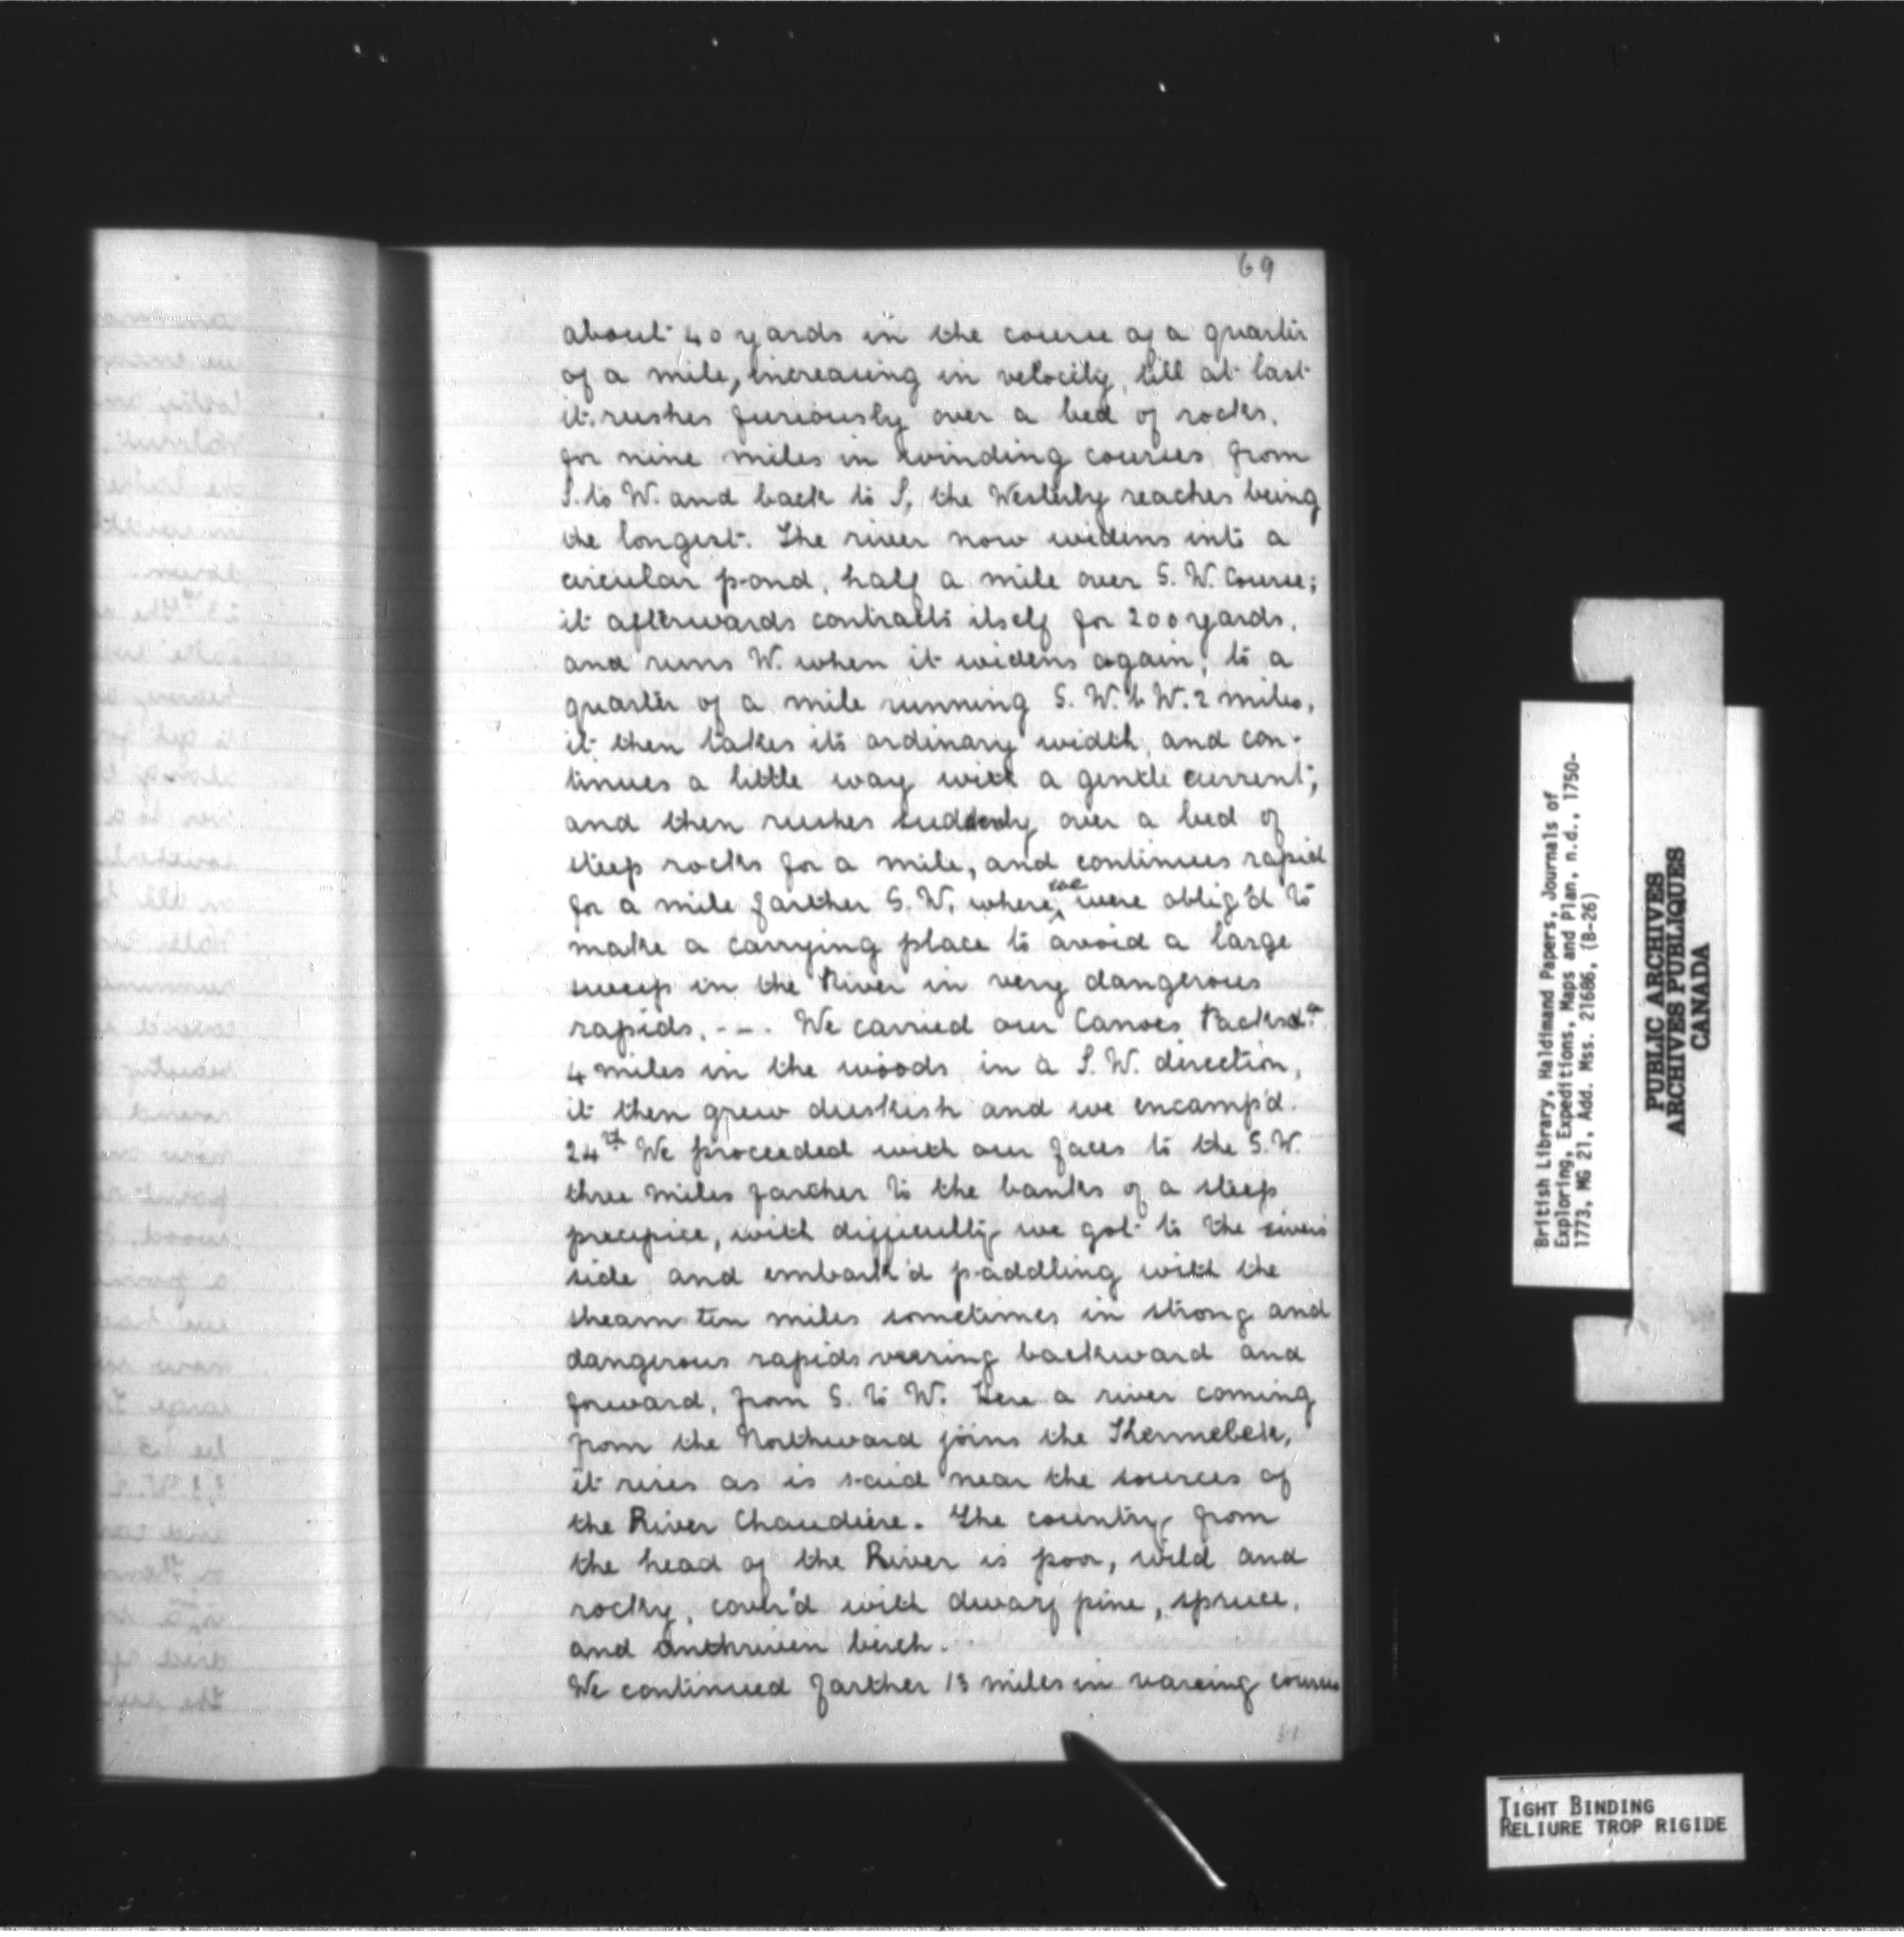 69
about 40 yards in the course of a quarter
of a mile, increasing in velocity, till at last
it rushes furiously over a bed of rocks,
for nine miles in winding courses from
S. to W. and back to S, the Westerly reaches being
the longest. The river now widens into a
circular pond, half a mile over S. W. Course;
it afterwards contracts itself for 200 yards,
and runs W. when it widens again; to a
quarter of a mile running S. W. b W. 2 miles,
it then takes its ordinary width, and con-
tinues a little way with a gentle current;
and then rushes suddenly over a bed of
steep rocks for a mile, and continues rapid
for a mile farther S. W. where we were oblig'd to
make a carrying place to avoid a large
sweep in the River in very dangerous
rapids. - - . We carried our Canoes Packs &ca
4 miles in the woods in a S. W. direction,
it then grew duskish and we encamp'd.
24th We proceeded with our faces to the S. W.
three miles farther to the banks of a steep
precipice, with difficulty we got to the rivers
side and embark'd paddling with the
stream ten miles sometimes in strong and
dangerous rapids veering backward and
forward, from S. to W. Here a river coming
from the Northward joins the Khennebek,
it rises as is said near the sources of
the River Chaudiere. The country from
the head of the River is poor, wild and
rocky, cover'd with dwarf pine, spruce,
and unthriven birch.
We continued farther 13 miles in vareing courses
British Library, Haldimand Papers, Journals of
Exploring, Expeditions, Maps and Plan, n.d., 1750-
1773, MG 21, Add. Mss. 21686, (B-26)
PUBLIC ARCHIVES
ARCHIVES PUBLIQUES
CANADA
TIGHT BINDING
RELIURE TROP RIGIDE